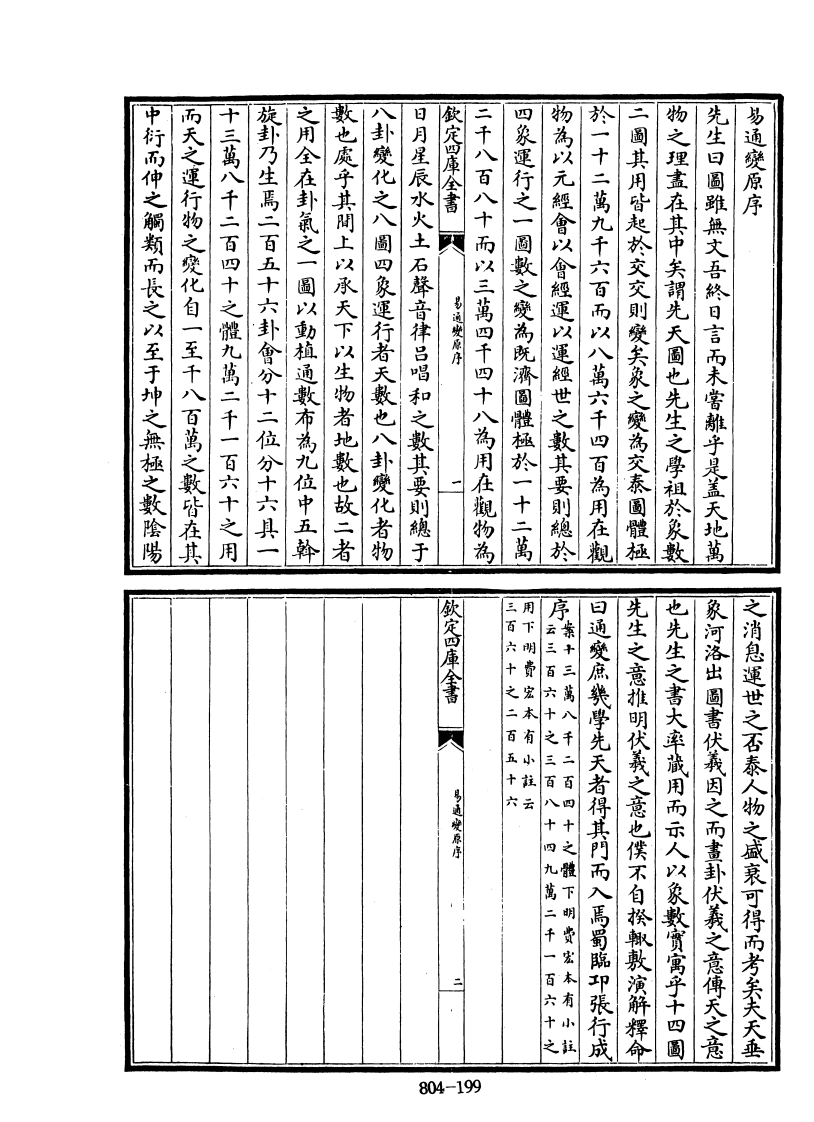 易通變原序
先生曰圖雖無文吾終日言而未嘗離乎是盖天地萬
物之理盡在其中矣謂先天圖也先生之學祖於象數
二圖其用皆起於交交則變矣象之變為交泰圖體極
於一十二萬九千六百而以八萬六千四百為用在觀
物為以元經會以會經運以運經世之數其要則總於
四象運行之一圖數之變為既濟圖體極於一十二萬
二千八百八十而以三萬四千四十八為用在觀物為
欽定四庫全書
易通變原序
一
日月星辰水火土石聲音律吕唱和之數其要則總于
八卦變化之八圖四象運行者天數也八卦變化者物
數也處乎其間上以承天下以生物者地數也故二者
之用全在卦氣之一圖以動植通數布為九位中五斡
旋卦乃生焉二百五十六卦會分十二位分十六具一
十三萬八千二百四十之體九萬二千一百六十之用
而天之運行物之變化自一至千八百萬之數皆在其
中衍而伸之觸類而長之以至于坤之無極之數陰陽
之消息運世之否泰人物之盛衰可得而考矣夫天垂
象河洛出圖書伏羲因之而畫卦伏羲之意傳天之意
也先生之書大率蔵用而示人以象數實寓乎十四圖
先生之意推明伏羲之意也僕不自揆輙敷演解釋命
曰通變庶幾學先天者得其門而入焉蜀臨卭張行成
序
案十三萬八千二百四十之體下明費宏本有小註
云三百六十之三百八十四九萬二千一百六十之
用下明費宏本有小註云
三百六十之二百五十六
欽定四庫全書
易通變原序
二
804-199